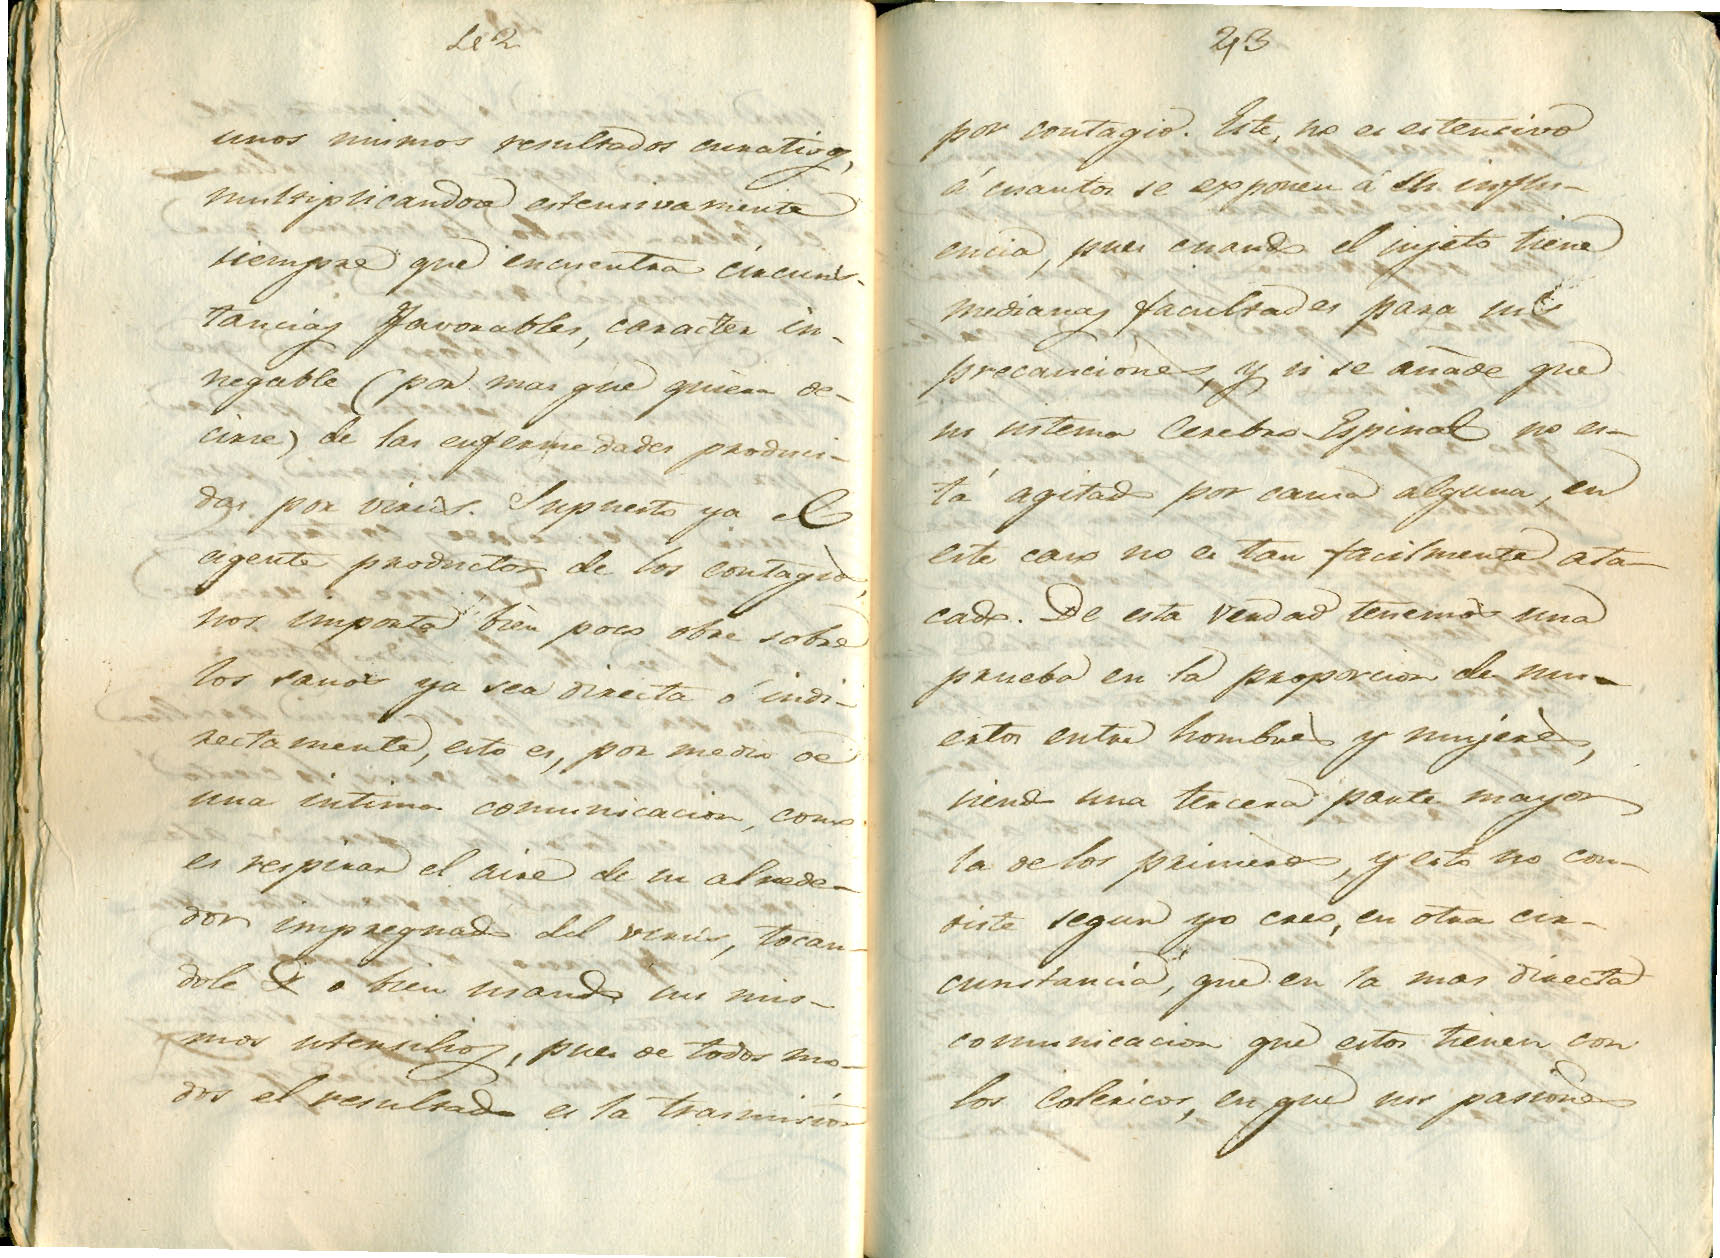 42
unos mismos resultados curativos,
multiplicandose estensivamente
siempre que encuentra circuns-
tancias favorables, caracter in-
negable (por mas que quiera de-
cirse) de las enfermedades produci-
das por virus. Supuesto ya el
agente productor de los contagios,
nos importa bien poco obre sobre
los sanos ya sea directa ó indi-
rectamente, esto es, por medio de
una intima comunicacion, como
es respirar el aire de su alrede-
dor impregnado del virus, tocan-
dole o bien usando sus mis-
mos utensilios, pues de todos mo-
dos el resultado es la trasmision
43
por contagio. Este, no es estensivo
á cuantos se exponen á su influ-
encia, pues cuando el sujeto tiene
medianas facultades para sus
precauciones, y si se añade que
su sistema Cerebro Espinal no es-
tá agitado por causa alguna, en
este caso no es tan facilmente ata-
cado. De esta verdad tenemos una
prueba en la proporcion de mu-
ertos entre hombres y mujeres,
siendo una tercera parte mayor
la de los primeros, y esto no con-
siste segun yo creo, en otra cir-
cunstancia, que en la mas directa
comunicacion que estos tienen con
los colericos, en que sus pasiones